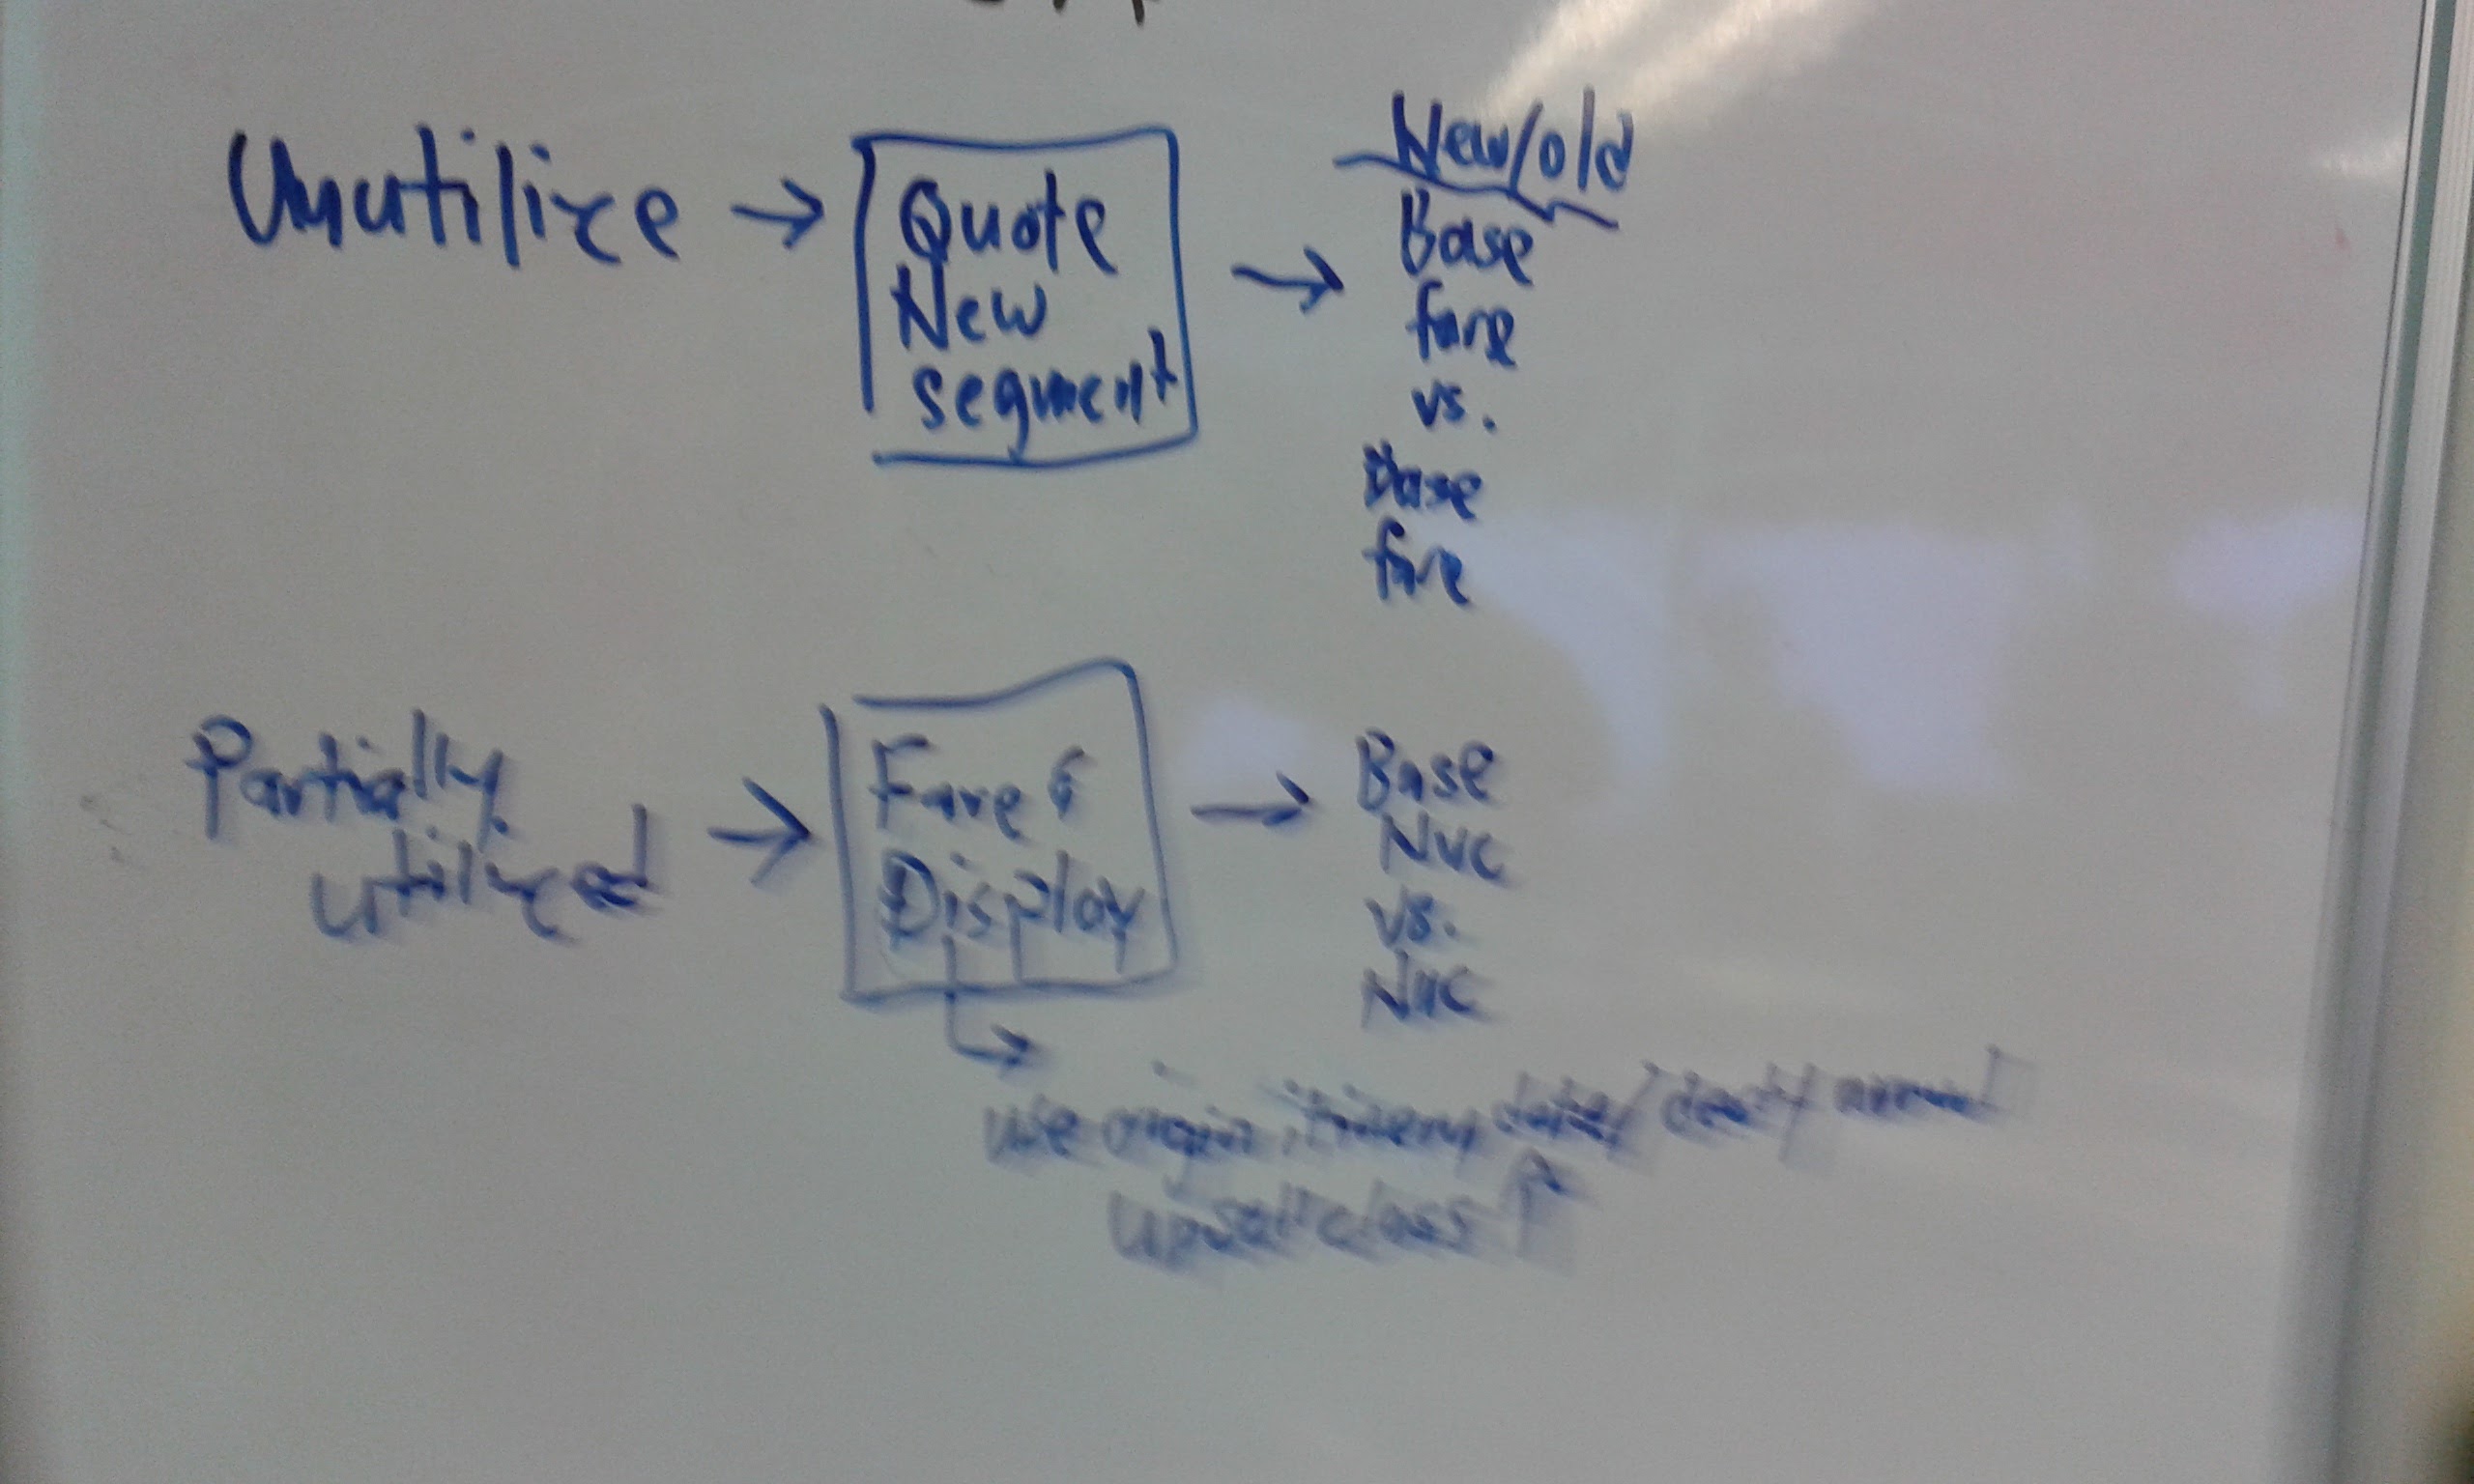 Unutilize →
Quote
New
segment
→
New/old
Base
fare
vs.
Base
fare
Partially
utilized
→
Fare
Display
→
Base
NUC
vs.
NUC
use origin itinerary date/
upsell class ↑